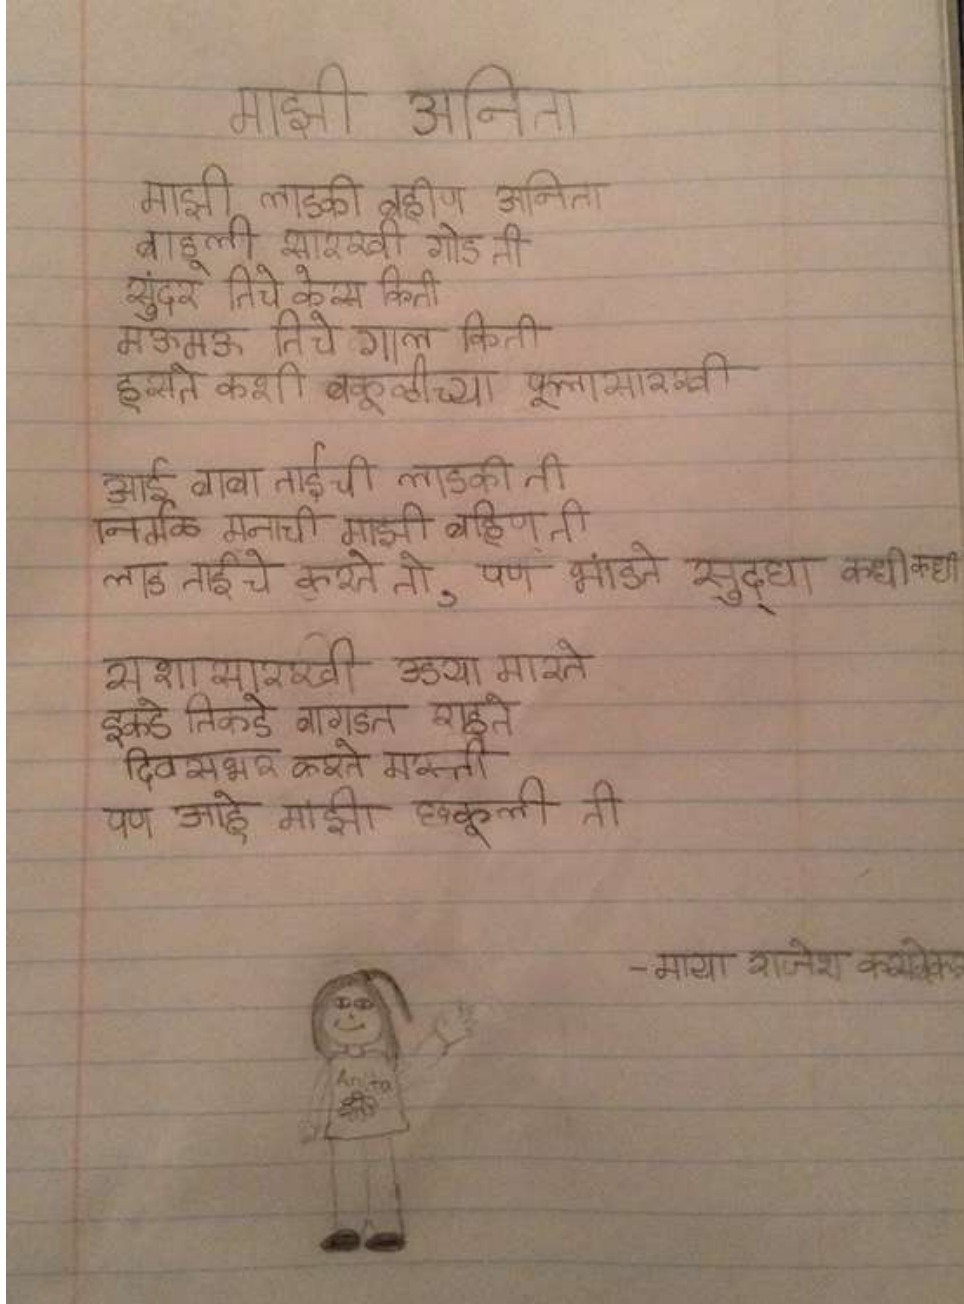 माझी अनिता
माझी लाडकी बहीण अनिता
बाहूली सारखी गोड ती
सुंदर तिचे केस किती
मऊमऊ तिचे गाल किती
हसते कशी बकूळीच्या फूलासारखी
आई बाबा ताईची लाडकी ती
निर्मळ मनाची माझी बहिण ती
लाड ताईचे करते ती, पण भांडते सुद्धा कधीकधी
सशासारखी उड्या मारते
इकडे तिकडे बागडत राहते
दिवसभर करते मस्ती
पण आहे माझी छकूली ती
-माया राजेश
Anita